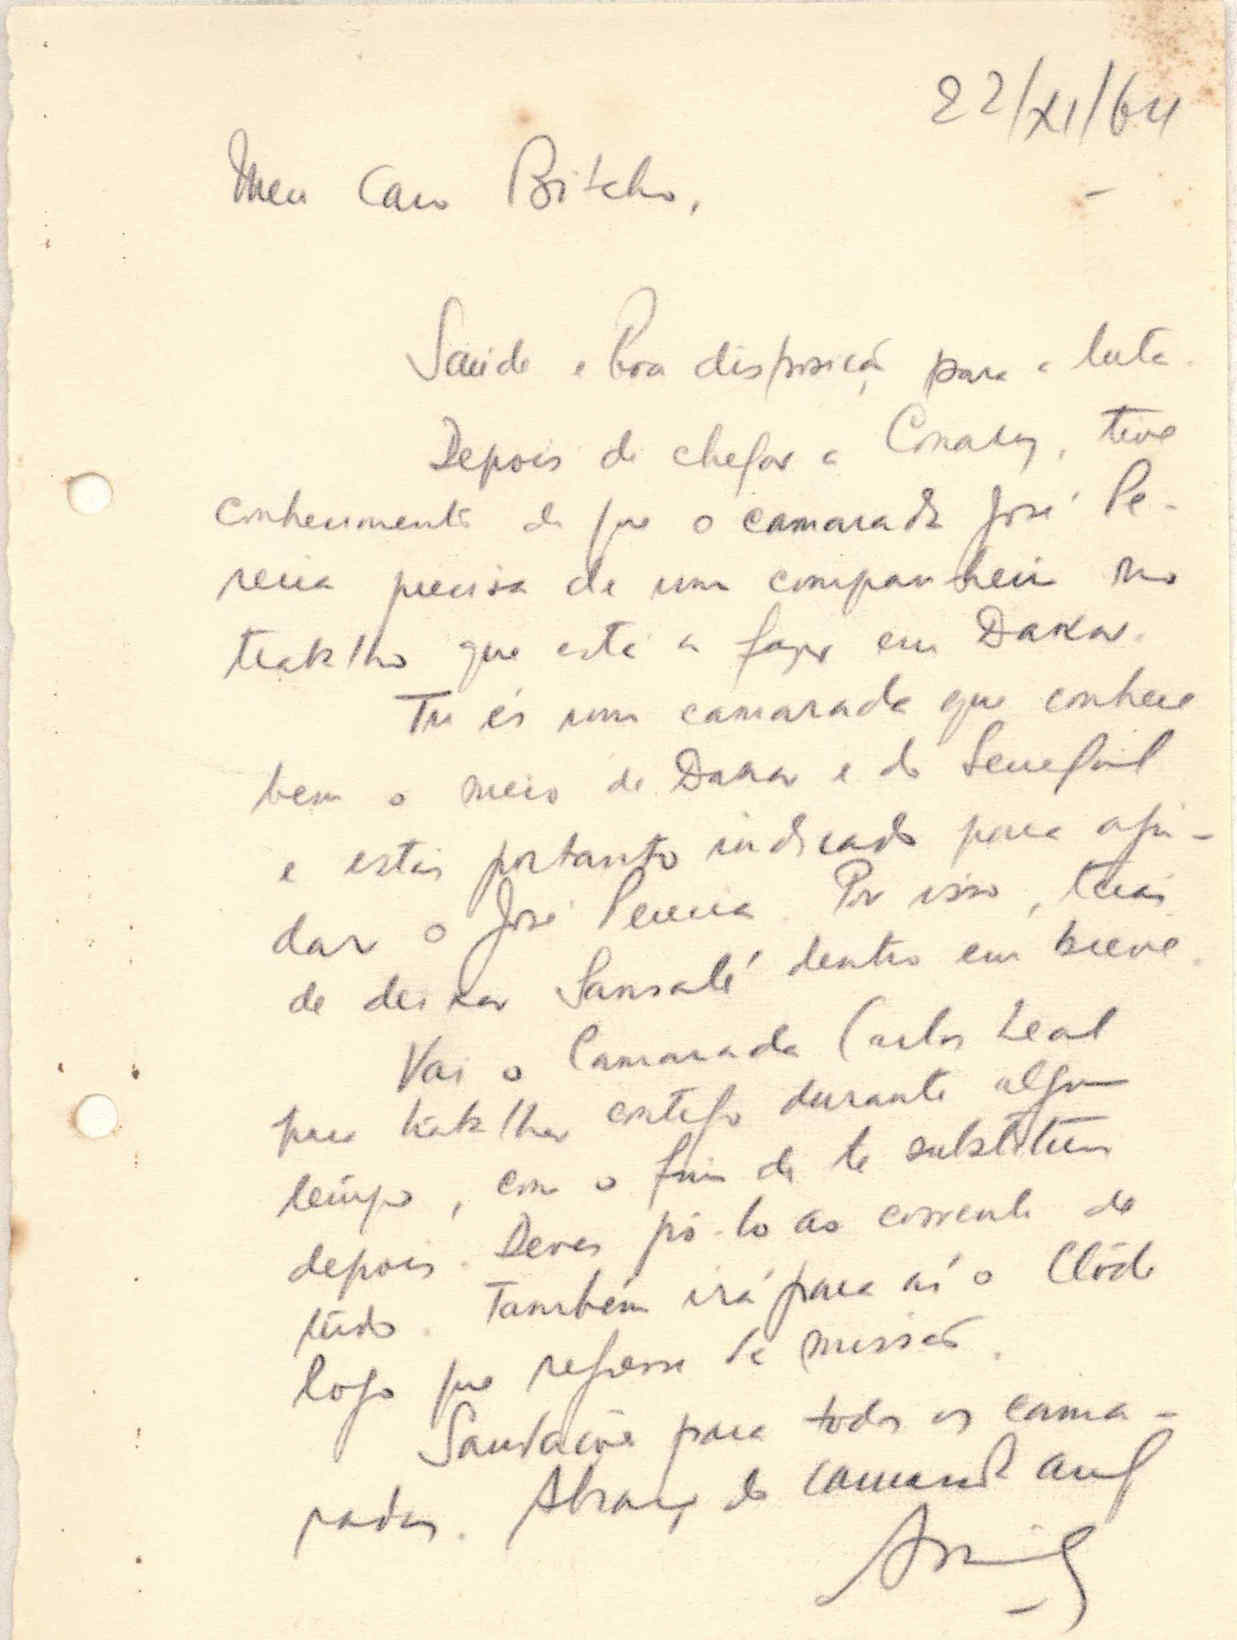 22/XI/64
Meu Caro Bitcho,
Saúde e boa disposição para a luta.
Depois de chegar a Conakry, tive
conhecimento de que o camarada José Pe-
reira precisa de um companheiro no
trabalho que está a fazer em Dakar.
Tu és um camarada que conhece
bem o meio de Dakar e do Senegal
e estás portanto indicado para aju-
dar o José Pereira. Por isso, terás
de deixar Samsalé dentro em breve.
Vai o Camarada Carlos Leal
para trabalhar contigo durante algum
tempo, com o fim de te substituir
depois. Deves pô-lo ao corrente de
tudo. Também irá para aí o Clóde
logo que regresse da missão.
Saudações para todos os cama-
radas. Abraço do camarada